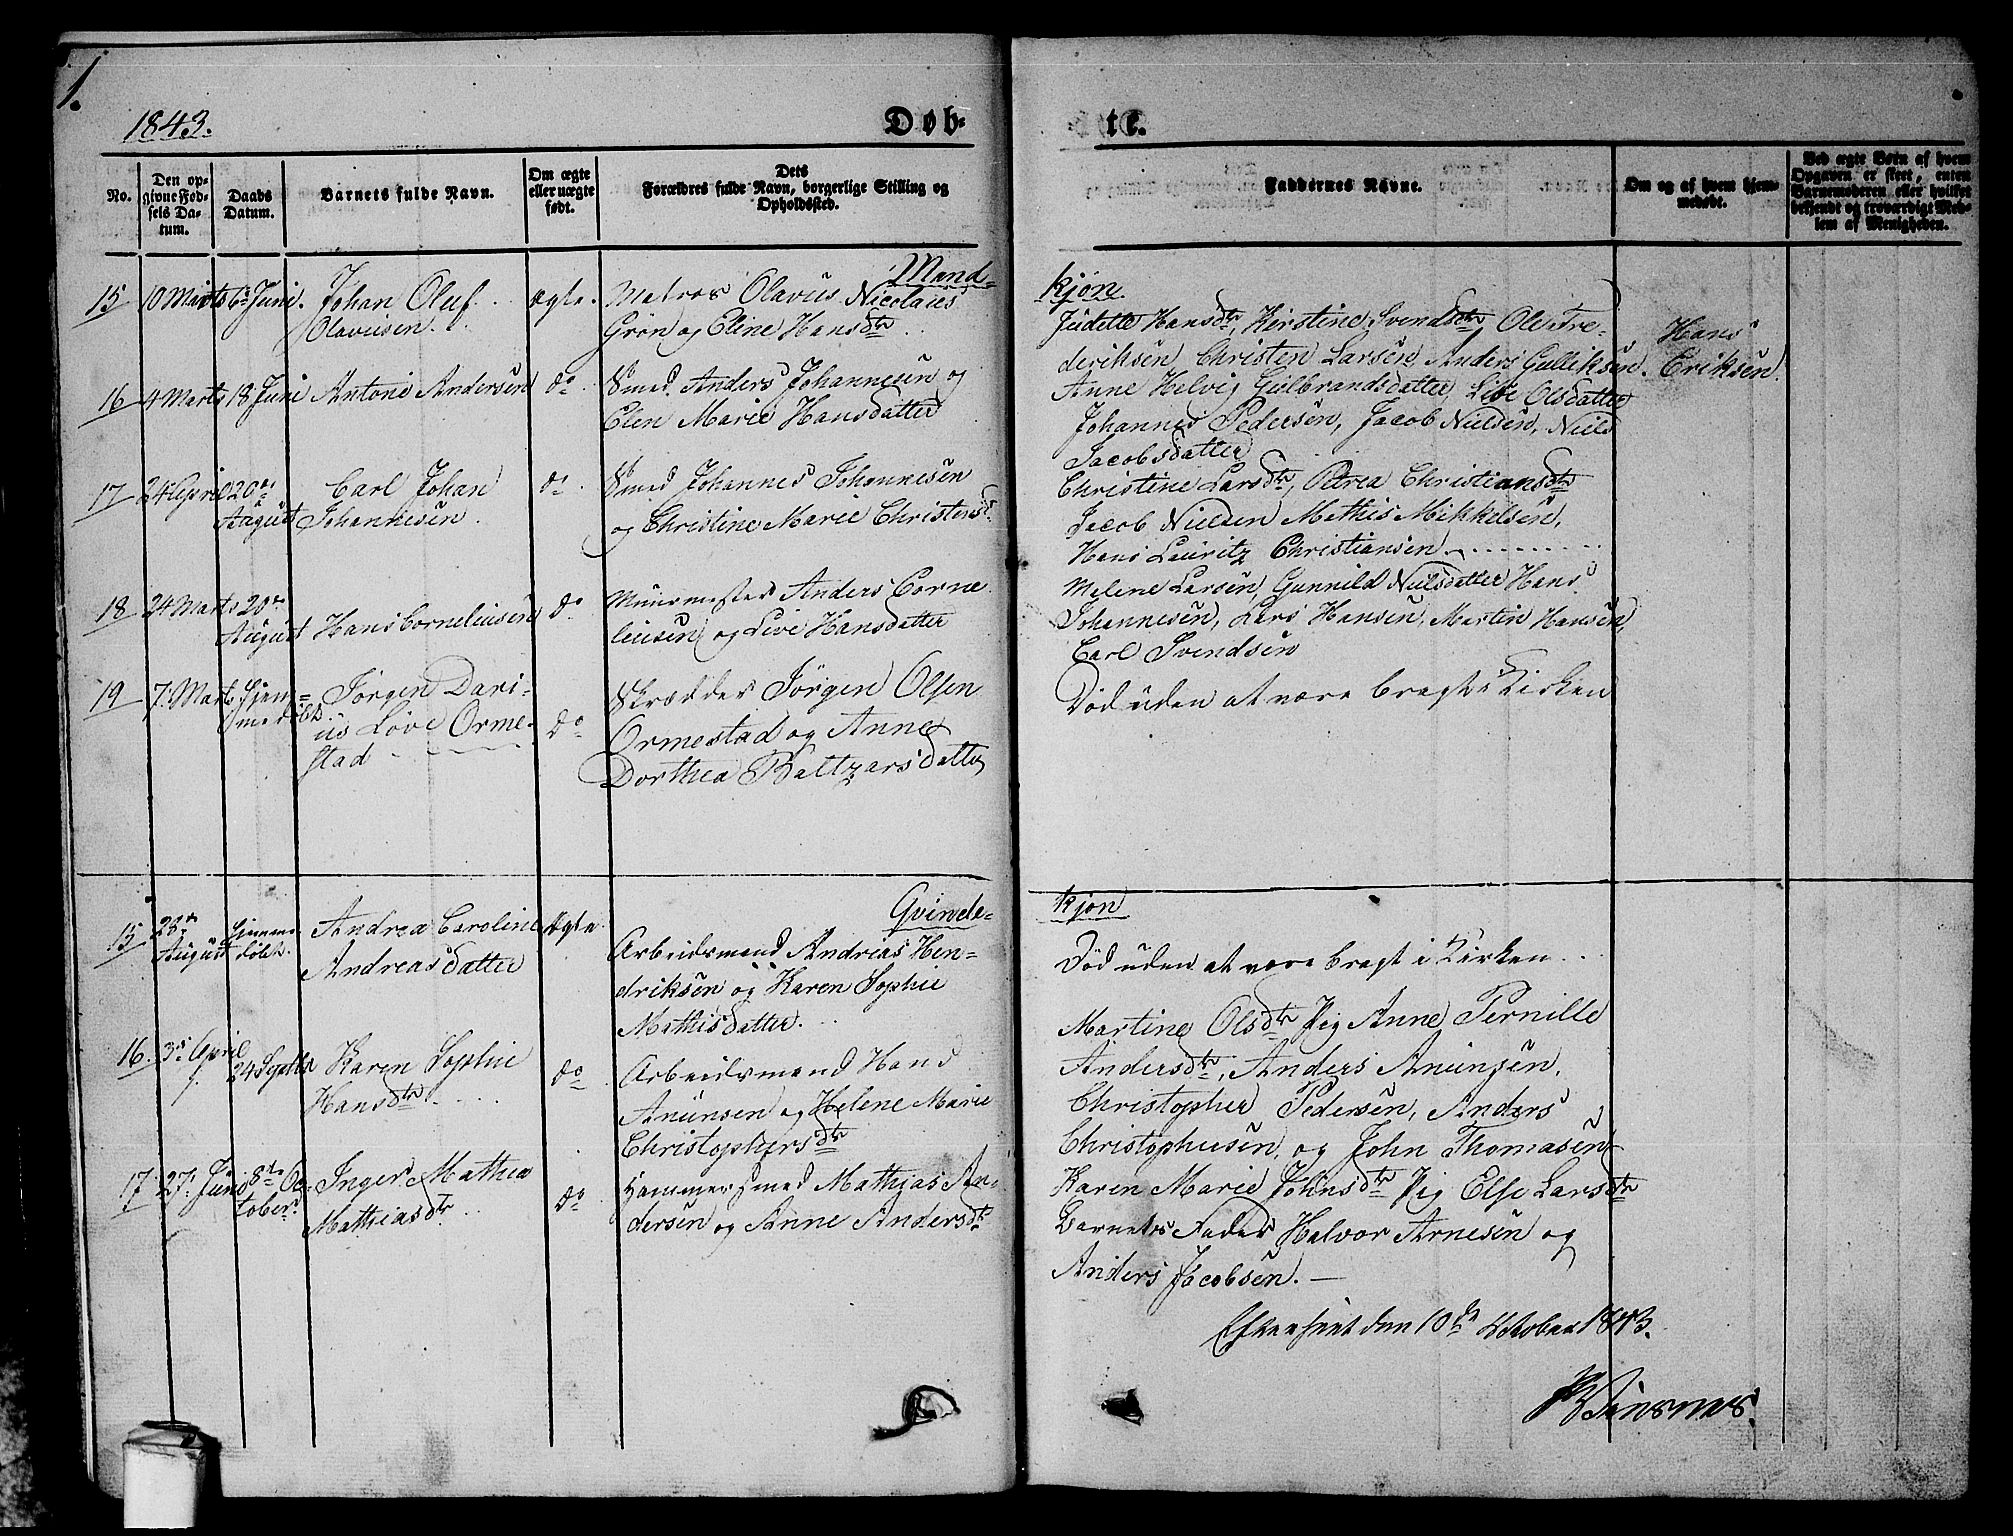 1.
1843.
Døb-
te.
No.
Den op-
givne Fød-
sels Da-
tum.
Daabs
Datum.
Barnets fulde Navn.
Om ægte
eller uægte
født.
Dets
Forældres fulde Navn, borgerlige Stilling og
Opholdssted.
Faddernes Navne.
Om og af hvem hjem-
medøbt.
Ved ægte Børn af hvem
Opgaven er skeet, enten
Barnemoderen eller hvilket
bekjendt og troværdigt Med-
lem af Menigheden.
Mand-
kjøn
15 10 Marts 6 Juni. Johan Oluf
Olaviusen.
Ægte.
Matros Olavüs Nicolaus
Grön og Eline Hansdtr
Jüdette Hansdtr, Kirstine Svendsdtr, Ole Fre-
deriksen Christen Larsen Anders Gulliksen.
Hans
Eriksen.
16 4 Marts 18 Juni Antoni Andersen do
Smed Anders Johannesen og
Elen Marie Hansdatter
Anne Helvig Gulbrandsdatter, Live Olsdatter
Johannes Pedersen, Jacob Nielsen, Niels
Jacobsdatter
17 24 April 20de
August
Carl Johan
Johannesen.
do
Smed Johannes Johannesen
og Christine Marie Christensd.
Christine Larsdtr, Petrea Christiansdtr
Jacob Nielsen Mathis Mikkelsen,
Hans Lauritz Christiansen
18 24 Marts 20de
August
Hans Corneliusen do
Muurmester Anders Corne
liusen og Live Hansdatter
Melene Larsen, Gunnild Nielsdatter Hans
Johannesen, Lars Hansen, Martin Hansen,
Carl Svendsen
19 7. Marts Hjem-
medøbt.
Jörgen Dari-
us Love Orme-
stad
do
Skrædder Jörgen Olsen
Ormestad og Anne
Dorthea Baltzarsdatter
Död uden at være bragt i Kirken
Qvinde-
kjøn
15 28de
August
Hjemme-
døbt.
Andrea Caroline
Andreasdatter
Ægte
Arbeidsmand Andrias Hen-
driksen og Karen Sophie
Mathisdatter.
Död uden at være bragt i Kirken
16. 3 April
24 Septbr
Karen Sophie
Hansdtr
do
Arbeidsmand Hans
Anunsen og Helene Marie
Christophersdtr
Martine Olsdtr Pig Anne Pernille
Andersdtr, Anders Anunsen,
Christopher Pedersen, Anders
Christophersen, og John Thomasen
17. 27. Juni 8de Oc-
tober.
Inger Mathea
Mathiasdtr.
do
Hammersmed Mathias An-
dersen og Anne Andersdtr
Karen Marie Johnsdtr Pig Else Larsdtr
Barnets Fader Halvor Arnesen og
Anders Jacobsen.
Efterseet den 10de October 1843.
Winsnes.